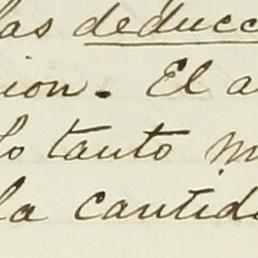 las deducc
ion. El a
lo tanto m
la cantida